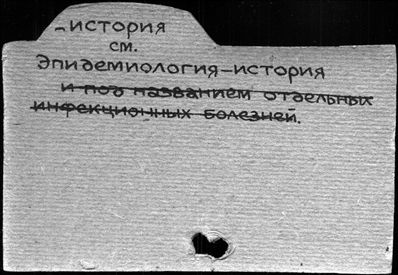 -история
см.
Эпидемиология-история
и под названием отдельных
инфекционных болезней.